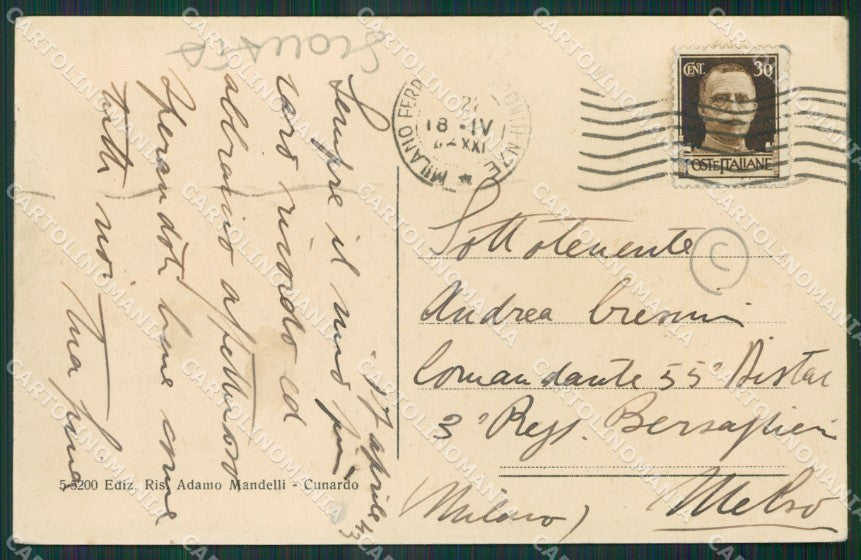 17 aprile 43
Sempre il mio più
caro ricordo ed
abbraccio affettuoso
sperandoti bene come
tutti noi
Tua
MILANO FERR
18 · IV
XXI
CENT. 30
POSTE ITALIANE
Sottotenente
Andrea
Comandante 55°
3° Regg. Bersaglieri
Milano)
C
5-5200 Ediz. Ris. Adamo Mandelli - Cunardo
CARTOLINOMANIA